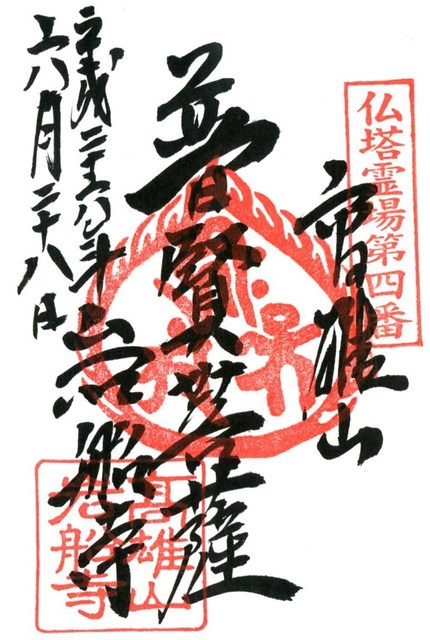 仏塔霊場第四番
高雄山
普賢菩薩
岩船寺
平成二十六年
六月二十八日
高雄山
岩船寺